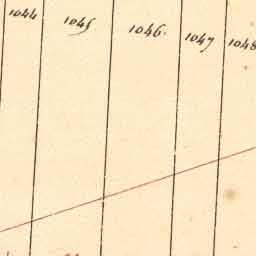 1044 1045 1046. 1047 1048